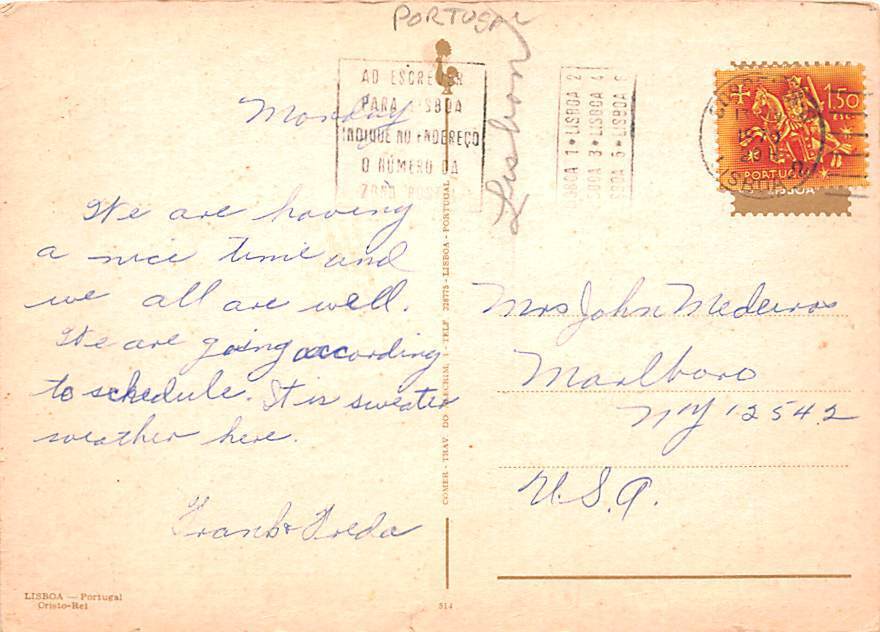 PORTUGAL
Lisbon
AO ESCREVER
PARA LISBOA
INDIQUE NO ENDEREÇO
O NÚMERO DA
ZONA POSTAL
LISBOA 1 • LISBOA 2
LISBOA 3 • LISBOA 4
LISBOA 5 • LISBOA 6
1$50
ESC.
PORTUGAL
LISBOA
Monday
We are having
a nice time and
we all are well.
We are going according
to schedule. It is sweater
weather here.
Frank & Freda
Mrs John Medeiros
Marlboro
NY 12542
U.S.A.
COMER - TRAV. DO ALECRIM, 1 - TELF 328775 - LISBOA - PORTUGAL
LISBOA — Portugal
Cristo-Rei
514